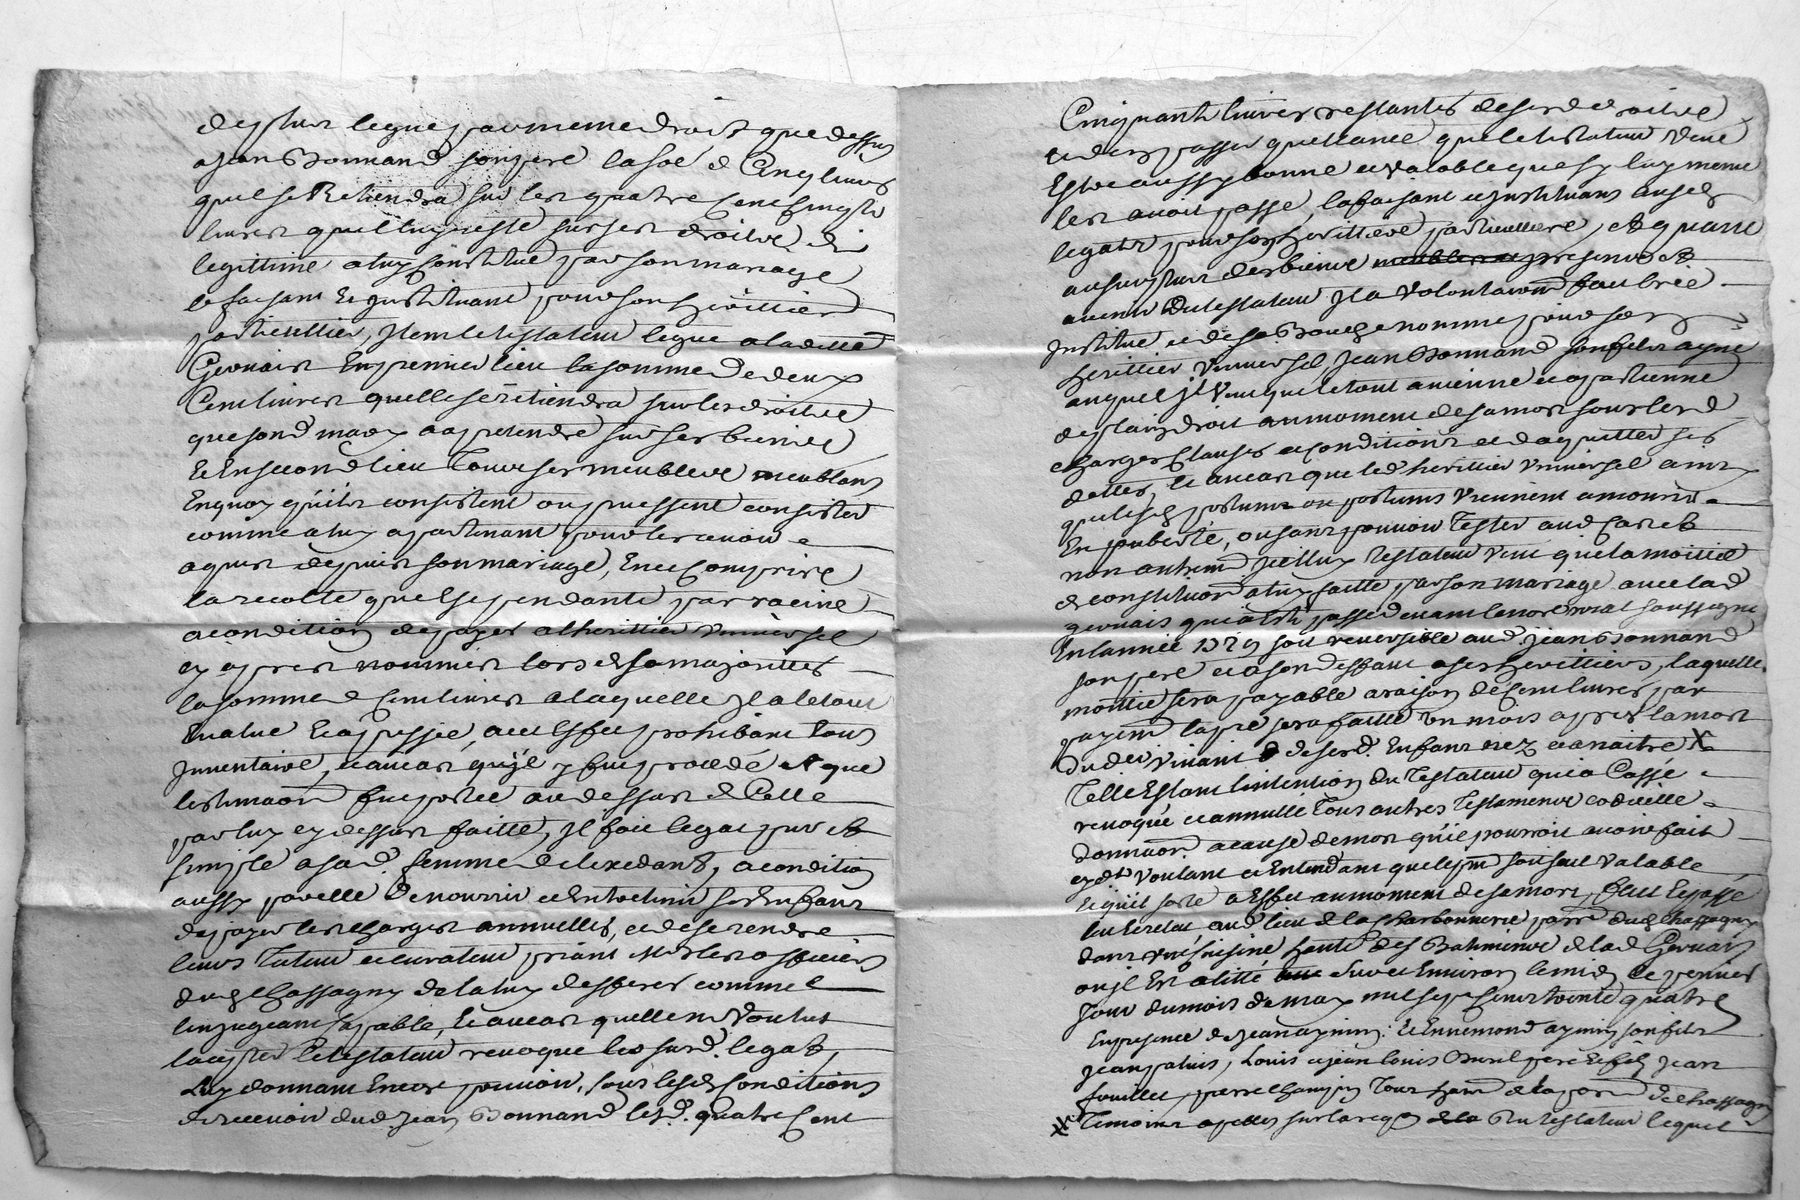 de plus legue par meme droit que dessus
a Jean Bonnand son pere la soe de Cinq livres
quil se Retiendra sur les quatre cent cinqte
livres quil luy reste sur ses droits de
legittime a luy constitué par son mariage
le faisant et Instituant pour son heritier
particullier, Item le testateur legue a ladite
Gervais En premier lieu la somme de deux
Cent livres quelle se retiendra sur les droits
que sond mary a a pretendre sur ses biens
Et En second lieu Tous ses meubles meublans
En quoy quils consistent ou puissent consister
comme a luy apartenant pour les avoir
aquis depuis son mariage, En ce compris
la recolte quelle pendante par racine
a condition de payer a lheritier universel
cy apres nommer lors de sa majorittes
la somme de Cent livres a laquelle Il a le tout
Evalué Et apressié, avec Effet prohibant tous
Inventaire, et au cas quil y fut procedé et que
lestimaon fut portee au dessus de Celle
par luy cy dessus faitte, Il fait legat pur et
simple a sad. femme de lexedant, a condition
aussy pour elle De nourrir et Entretenir ses Enfans
de payer les charges annuelles, et de se rendre
leurs Tuteur et curateur priant Mrs les officiers
dud Chassagny de la luy defferer comme
len jugeant capable, Et au cas quelle ne voulut
laccepter le testateur revoque les surd. legats,
Luy donnant Encore pouvoir, sous lesd conditions
de recevoir dud. Jean Bonnand lesd. quatre Cent
Cinquante livres restantes de sesd droits
et den passer quittance que le testateur veut
Estre aussy bonne et valable que sy luy meme
les avoit passé, la faisant et Instituant ausd
legats pour son herittiere particulliere, Et quant
au surplus des biens presents et
avenir du testateur Il a volontairemt fait
Institué et de sa Bouche nommé pour son
heritier Universel, Jean Bonnand son fils ayné
auquel Il veut que le tout avienne et apartienne
de plain droit au moment de sa mort sous lesd
charges Clauses et conditions et daquitter ses
dettes, Et au cas que led heritier universel ainsy
que lesd postume ou postumes viennent a mourir
En puberté, ou sans pouvoir Tester aud cas et
non autremt Icelluy testateur veut que la moittié
de constituon a luy faitte par son mariage avec lad
gervais qui a Esté passé devant le nore royal soussigne
En lannee 1729 soit reversible aud Jean Bonnand
son pere et a son deffaut a ses herittiers, laquelle
moittié sera payable a raison de Cent livres par
payemt la pre sera faitte un mois apres la mort
du der vivant de sesd. Enfans néz et a naitre X
Telle Estant lintention du Testateur qui a Cassé
revoqué et annullé Tous autres Testamens codicille
donnaon a cause de mort quil pourroit avoir fait
cy dt voulant et Entendant que le pnt soit seul valable
Et quil sorte a Effet au moment de sa mort, fait Et passé
leu Et relu aud lieu de la Charbonnerie parr dud Chassagny
dans une cuisine haute des Batiments de lad Gervais
ou Il Est alitté sur les Environ le midy le premier
Jour du mois de may mil sept cent trente quatre
En presence de Jean aynin: Et Ennemond aynin son fils
Jean patuis, Louis et Jean louis Buril pere Et fils Jean
fouillet, pierre champin Tous habt de la parr de Chassagny
Temoins apelles sur la reqon du testateur lequel